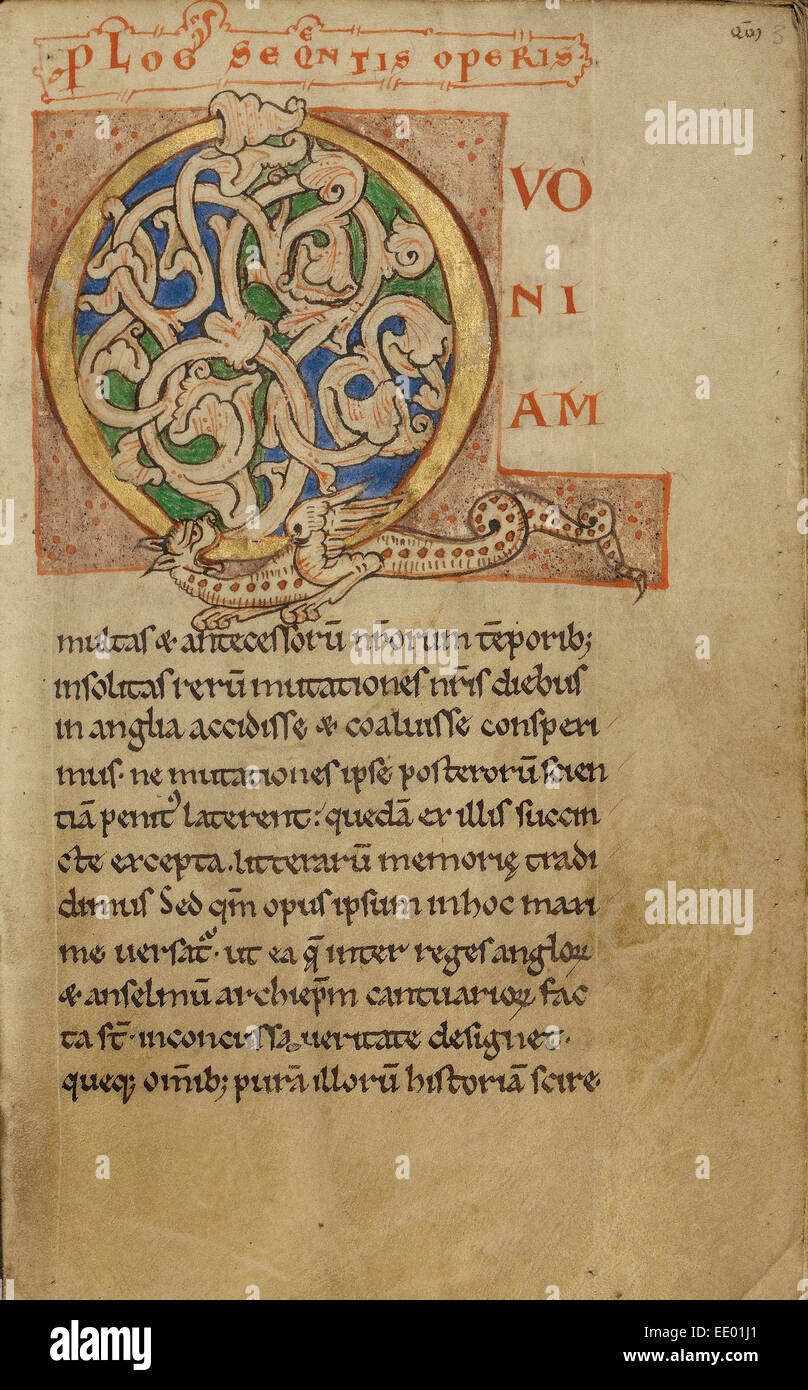 PLOG' SEQNTIS OPERIS
Q
VO
NI
AM
multas & antecessorū nr̄orum tēporib;
insolitas rerū mutationes nr̄is diebus
in anglia accidisse & coaluisse consperi
mus. ne mutationes ipsę posterorū scien
tiā penit' laterent: quedā ex illis succin
cte excepta. litterarū memorię tradi
dimus Sed qm̄ opus ipsum in hoc maxi
me uersat'. ut ea q̄ inter reges angloꝝ
& anselmū archiep̄m cantuarioꝝ fac
ta st̄ inconcussa ueritate designet.
queq; om̄ib; purā illorū historiā scire.
alamy
alamy
alamy
a
a
a
a
a
a
alamy
Image ID: EE01J1
www.alamy.com